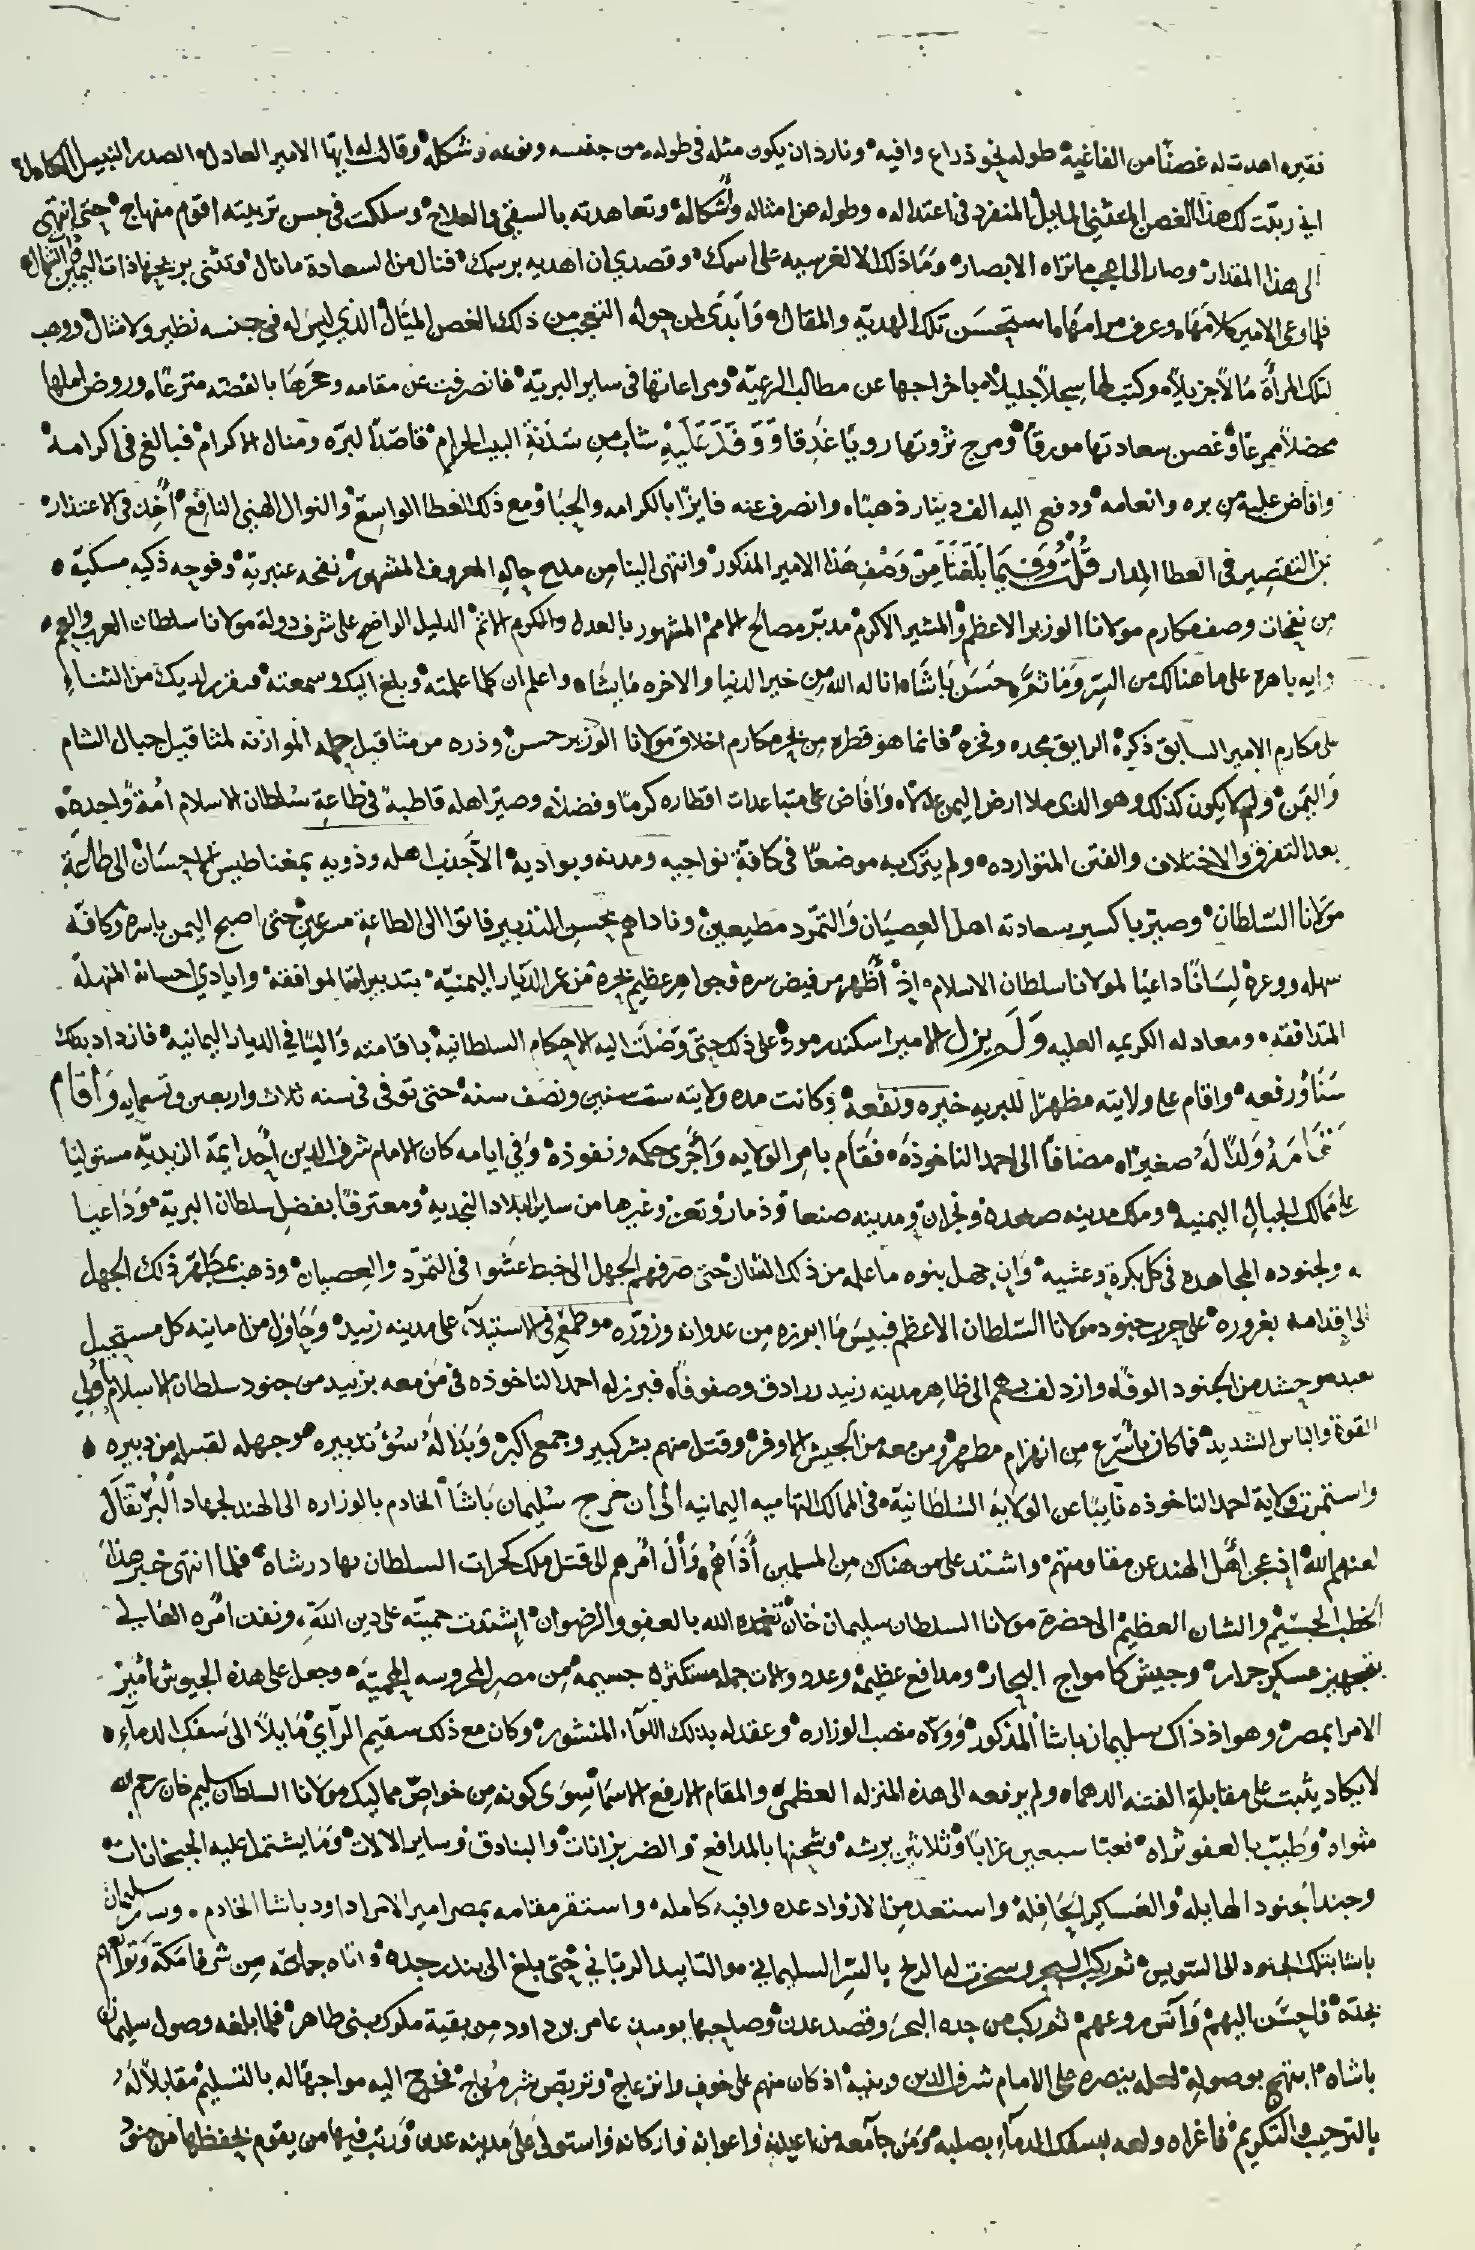 فقيره اهدت له غصنًا من الفاغية طوله نحو ذراع وافيه ونادر ان يكون مثله في طوله من جنسه ونوعه وشكله وقالت له ايها الامير العادل والصدر النبيل الكامل
اني ربّيت لك هذا الغصن المايل المنفرد في اعتداله وطوله عن امثاله واشكاله وتعاهدته بالسقي والعلاج وسلكت في حسن تربيته اقوم منهاج حتى انتهى
الى هذا المقدار وصار الى اعجب ما تراه الابصار وما ذلك الا لغرسيه على اسمك وقصدي ان اهديه برسمك فنال من السعادة ما نال وتثنى بريحها ذات اليمين وذات الشمال
فلما وعى الامير كلامها وعرف مرامها استحسن تلك الهديّه والمقال وابدى لمن حوله التعجب من ذلك الغصن الميّال الذي ليس له في جنسه نظير ولا مثال ووهب
لتلك المرأة مالاً جزيلاً وكتب لها سجلاً جليلاً باخراجها عن مطالب الرعيّة ومراعاتها في ساير البريّة فانصرفت عن مقامه وحجرها بالفضّة مترعًا وروض املها
مخضلاً ممرعًا وغصن سعادتها مورقًا ومرج ثروتها رويًا غدقا ووفد عليه شاب من سدنة البيت الحرام قاصدًا لبرّه ومنال الاكرام فبالغ في اكرامه
وافاض عليه من بره وانعامه ودفع اليه الف دينار ذهبًا وانصرف عنه فايزًا بالكرامه والحبا ومع ذلك العطا الواسع والنوال الهني النافع اخذ في الاعتذار
عن التقصير في العطا المدار قلت وفيما بلغنا من وصف هذا الامير المذكور وانتهى الينا من مديح حاله المعروف المشهور نفحه عنبريّة وفوحه ذكيه مسكيّة
من نفحات وصف مكارم مولانا الوزير الاعظم والمشير الاكرم مدبّر مصالح الامم المشهور بالعدل والكرم الاتم الدليل الواضح على شرف دولة مولانا سلطان العرب والعجم
وايه باهرة على ما هنالك من السرّ وما ثمّ حسن باشاه اناله الله من خير الدنيا والاخره ما يشاء واعلم ان كلما علمته وبلغ اليك وسمعته فتقرر لديك من الثناء
على مكارم الامير السابق ذكره الرايق مجده وفخره فانما هو قطره من بحر مكارم اخلاق مولانا الوزير حسن وذره من مثاقيل حلمه الموازنه لمثاقيل جبال الشام
واليمن ولم لا يكون كذلك وهو الذي ملا ارض اليمن عدلا وافاض على متباعدات اقطاره كرمًا وفضلا وصيّر اهله قاطبة في طاعة سلطان الاسلام امة واحدة
بعد التفرق والاختلاف والفتن المتوارده ولم يترك به موضعًا في كافة نواحيه ومدنه وبواديه الاّ جذب اهله وذويه بمغناطيس الاحسان الى طاعة
مولانا السّلطان وصيّر باكسير سعادته اهل العصيان والتمّرد مطيعين وناداهم بحسن التدبير فاتوا الى الطاعة مسرعين حتى اصبح اليمن باسره وكافّه
سهله ووعره لسانًا داعيًا لمولانا سلطان الاسلام اذ اظهر من فيض سره وجواهر عظيم بحره من عمر الديار اليمنيّة بتدبيراتها الموافقه وايادي احسانه المنهلّة
المتدافقه ومعادله الكريمه العليه ولم يزل الامير اسكندر موز على ذلك حتى وصلت اليه الاحكام السلطانية باقامته واليًا في الديار اليمانيه فازداد بذلك
سنًا ورفعه واقام على ولايته مظهرًا للبريه خيره ونفعه وكانت مده ولايته ست سنين ونصف سنه حتى توفى في سنه ثلاث واربعين وتسعمايه واقام
مقامه ولدًا له صغيرًا مضافًا الى احمد الناخوذه فقام بامر الولايه واجرى حكمه ونفوذه وفي ايامه كان الامام شرف الدين احد ايمّة الزيديّه مستوليًا
على ممالك الجبال اليمنيه وملك مدينه صعده ونجران ومدينه صنعا وذمار وتعز وغيرها من ساير البلاد النجديه ومعترفًا بفضل سلطان البرية وداعيا
له ولجنوده المجاهده في كل بكرة وعشيه وان جهل بنوه ما علمه من ذلك الشان حتى صرفهم الجهل الى خبط عشوا في التمرّد والعصيان وذهب بمطهّر ذلك الجهل
الى اقدامه بغروره على حرب جنود مولانا السّلطان الاعظم فبيس ما ابرزه من عدوانه وزوره وطمع في الاستيلاء على مدينه زبيد وحاول من امانيه كل مستحيل
بعيد وحشد من الجنود الوفًا وازدلف بهم الى ظاهر مدينه زبيد رادق وصفوفًا فبرز له احمد الناخوذه في من معه بزبيد من جنود سلطان الاسلام اولي
القوة والباس الشديد فما كان باسرع من انهزام مطهر ومن معه من الجيش الاوفر وقتل منهم بشر كبير وجمع اكبر وبدا له سؤ تدبيره وجهله لقبيله من دبيره
واستمرت ولاية احمد الناخوذه نايبًا عن الولاية السّلطانيّة في الممالك التهاميه اليمانيه الى ان خرج سليمان باشا الخادم بالوزاره الى الهند لجهاد البرتقال
لعنهم الله اذ عجز اهل الهند عن مقاومتهم واشتد على من هناك من المسلمين اذاهم وآل امرهم الى قتل ملك كجرات السلطان بهادر شاه فلما انتهى خبر هذا
الخطب الجسيم والشان العظيم الى حضرة مولانا السلطان سليمان خان تغمده الله بالعفو والرضوان اشتدت حميّته على دين الله ونفذ امره العالي
بتجهيز عسكر جرار وجيش كامواج البحار ومدافع عظيمه وعدد والات جمله مستكثرة جسيمه من مصر المحروسه المحميّة وجعل على هذه الجيوش امير
الامرا بمصر وهو اذ ذاك سليمان باشا المذكور وولاه منصب الوزاره وعقد له بذلك اللواء المنشور وكان مع ذلك سقيم الرأي مايلاً الى سفك الدماء
لا يكاد يثبت على مقابلة الفتنه الدهماء ولم يرفعه الى هذه المنزله العظمى والمقام الارفع الاسما سوى كونه من خواصّ مماليك مولانا السلطان سليم خان رحم الله
مثواه وطيب بالعفو ثراه فعبّا سبعين غرابًا وثلاثين برشه وشحنها بالمدافع والضربزانات والبنادق وساير الالات وما يشتمل عليه الجبخانات
وجند الجنود الهايله والعساكر الحافلة واستعد من الازواد عده وافيه كامله واستقر مقامه بمصر امير الامرا داود باشا الخادم وسار سليمان
باشا بتلك الجنود الى السّويس ثم ركب البحر وسخرت له الريح بالسّر السليماني والتاييد الربّاني حتى بلغ الى بندر جدة واتاه جماعة من شرفا مكّة وتوابعهم
بجدّه فاحسن اليهم وآنس روعهم ثم ركب من جده البحر وقصد عدن وصاحبها يوميذ عامر بن داود من بقية ملوك بني طاهر فلما بلغه وصول سليمان
باشاه ابتهج بوصوله لعله ينصره على الامام شرف الدين وبنيه اذ كان منهم على خوف وانزعاج وتربّص شر مزعج فخرج اليه مواجهًا له بالتسليم مقابلاً له
بالترحيب والتكريم فاغراه ولعه بسفك الدماء بصلبه ومن جآ معه من اعيانه واعوانه واركانه واستولى على مدينه عدن ورتب فيها من يقوم بحفظها من جنود